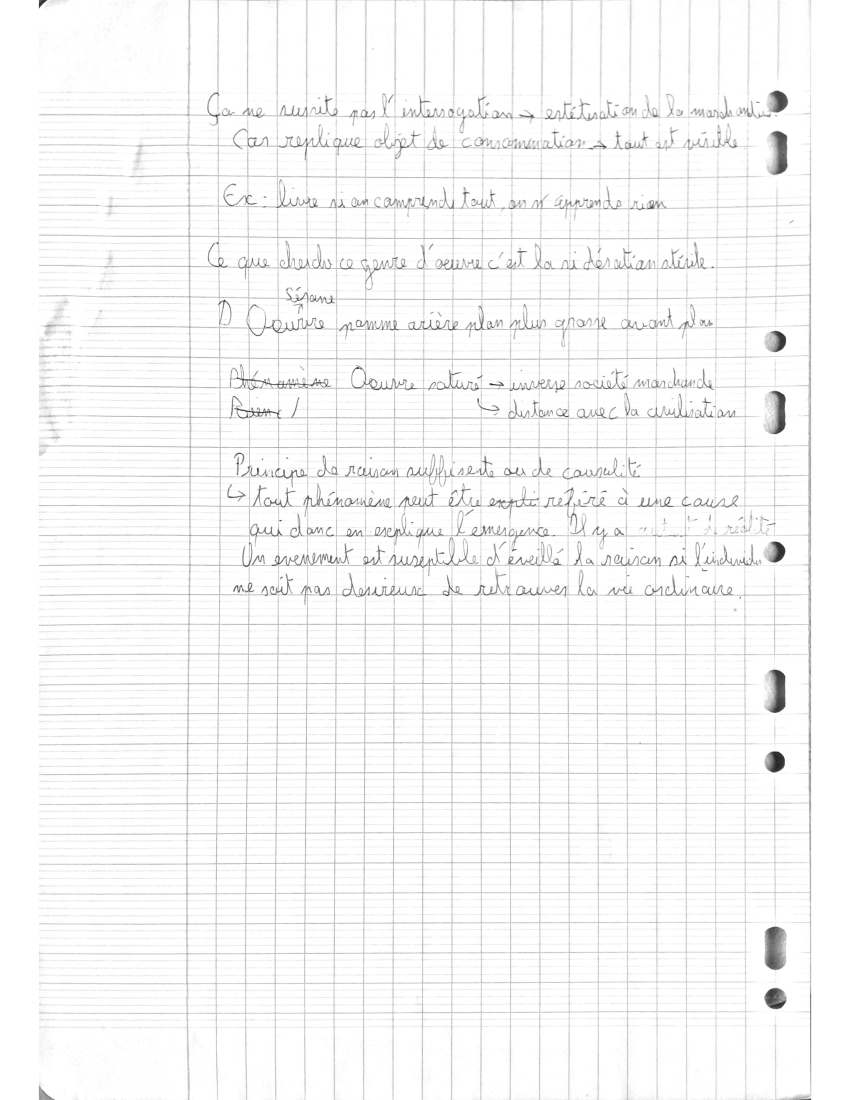 Ça ne suscite pas l'interrogation → estétisation de la marchandise.
Car replique objet de consommation → tout est visible
Ex : livre si on comprend tout, on n'apprends rien
Ce que cherche ce genre d'oeuvre c'est la sidération stérile.
Sésane
Oeuvre pomme arière plan plus grosse avant plan
Phénomène Oeuvre saturé → inverse société marchande
Rien / ↳ distance avec la civilisation
Principe de raison suffisente ou de causalité
↳ tout phénomène peut être expli reféré à une cause
qui donc en explique l'émergence. Il y a réalité
Un evenement est suseptible d'éveillé la raison si l'individu
ne soit pas desireux de retrouver la vie ordinaire.